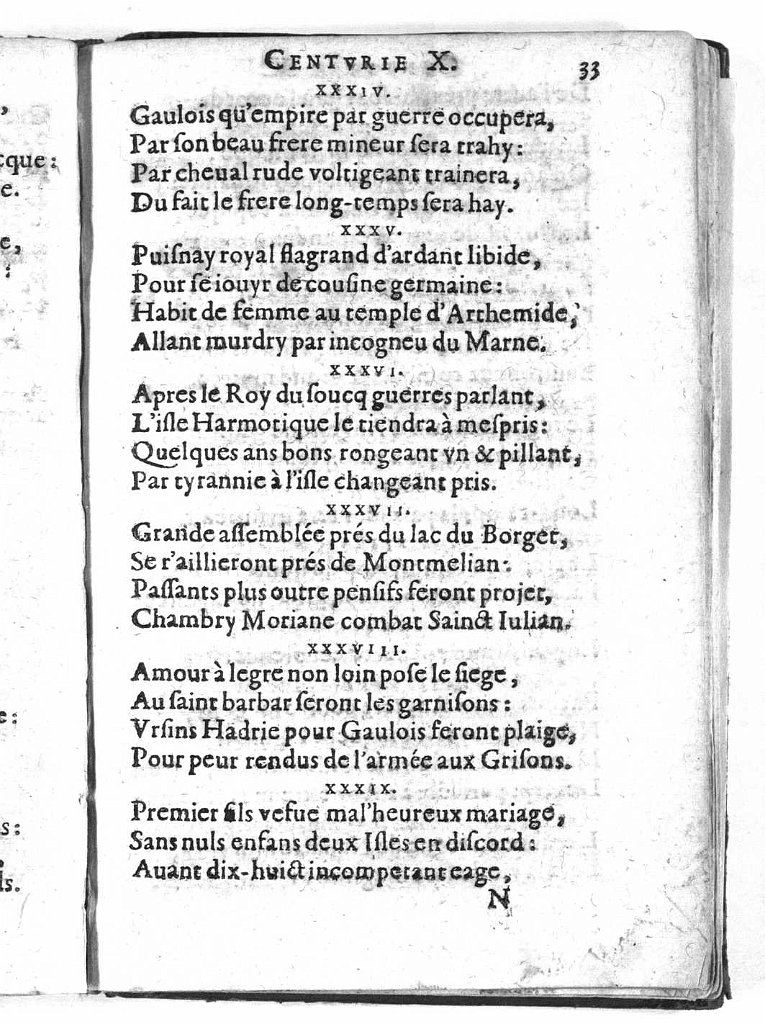 cque:
e.
e,
:
e:
s:
ls.
CENTVRIE X.
33
XXXIV.
Gaulois qu'empire par guerre occupera,
Par ſon beau frere mineur ſera trahy:
Par cheual rude voltigeant trainera,
Du fait le frere long-temps ſera hay.
XXXV.
Puiſnay royal flagrand d'ardant libide,
Pour ſe iouyr de couſine germaine:
Habit de femme au temple d'Arthemide,
Allant murdry par incogneu du Marne.
XXXVI.
Apres le Roy du ſoucq guerres parlant,
L'iſle Harmotique le tiendra à meſpris:
Quelques ans bons rongeant vn & pillant,
Par tyrannie à l'iſle changeant pris.
XXXVII.
Grande aſſemblée prés du lac du Borget,
Se r'aillieront prés de Montmelian:
Paſſants plus outre penſifs feront projet,
Chambry Moriane combat Sainct Iulian.
XXXVIII.
Amour à legre non loin poſe le ſiege,
Au ſaint barbar ſeront les garniſons:
Vrſins Hadrie pour Gaulois feront plaige,
Pour peur rendus de l'armée aux Griſons.
XXXIX.
Premier fils vefue mal'heureux mariage,
Sans nuls enfans deux Iſles en diſcord:
Auant dix-huict incompetant eage,
N